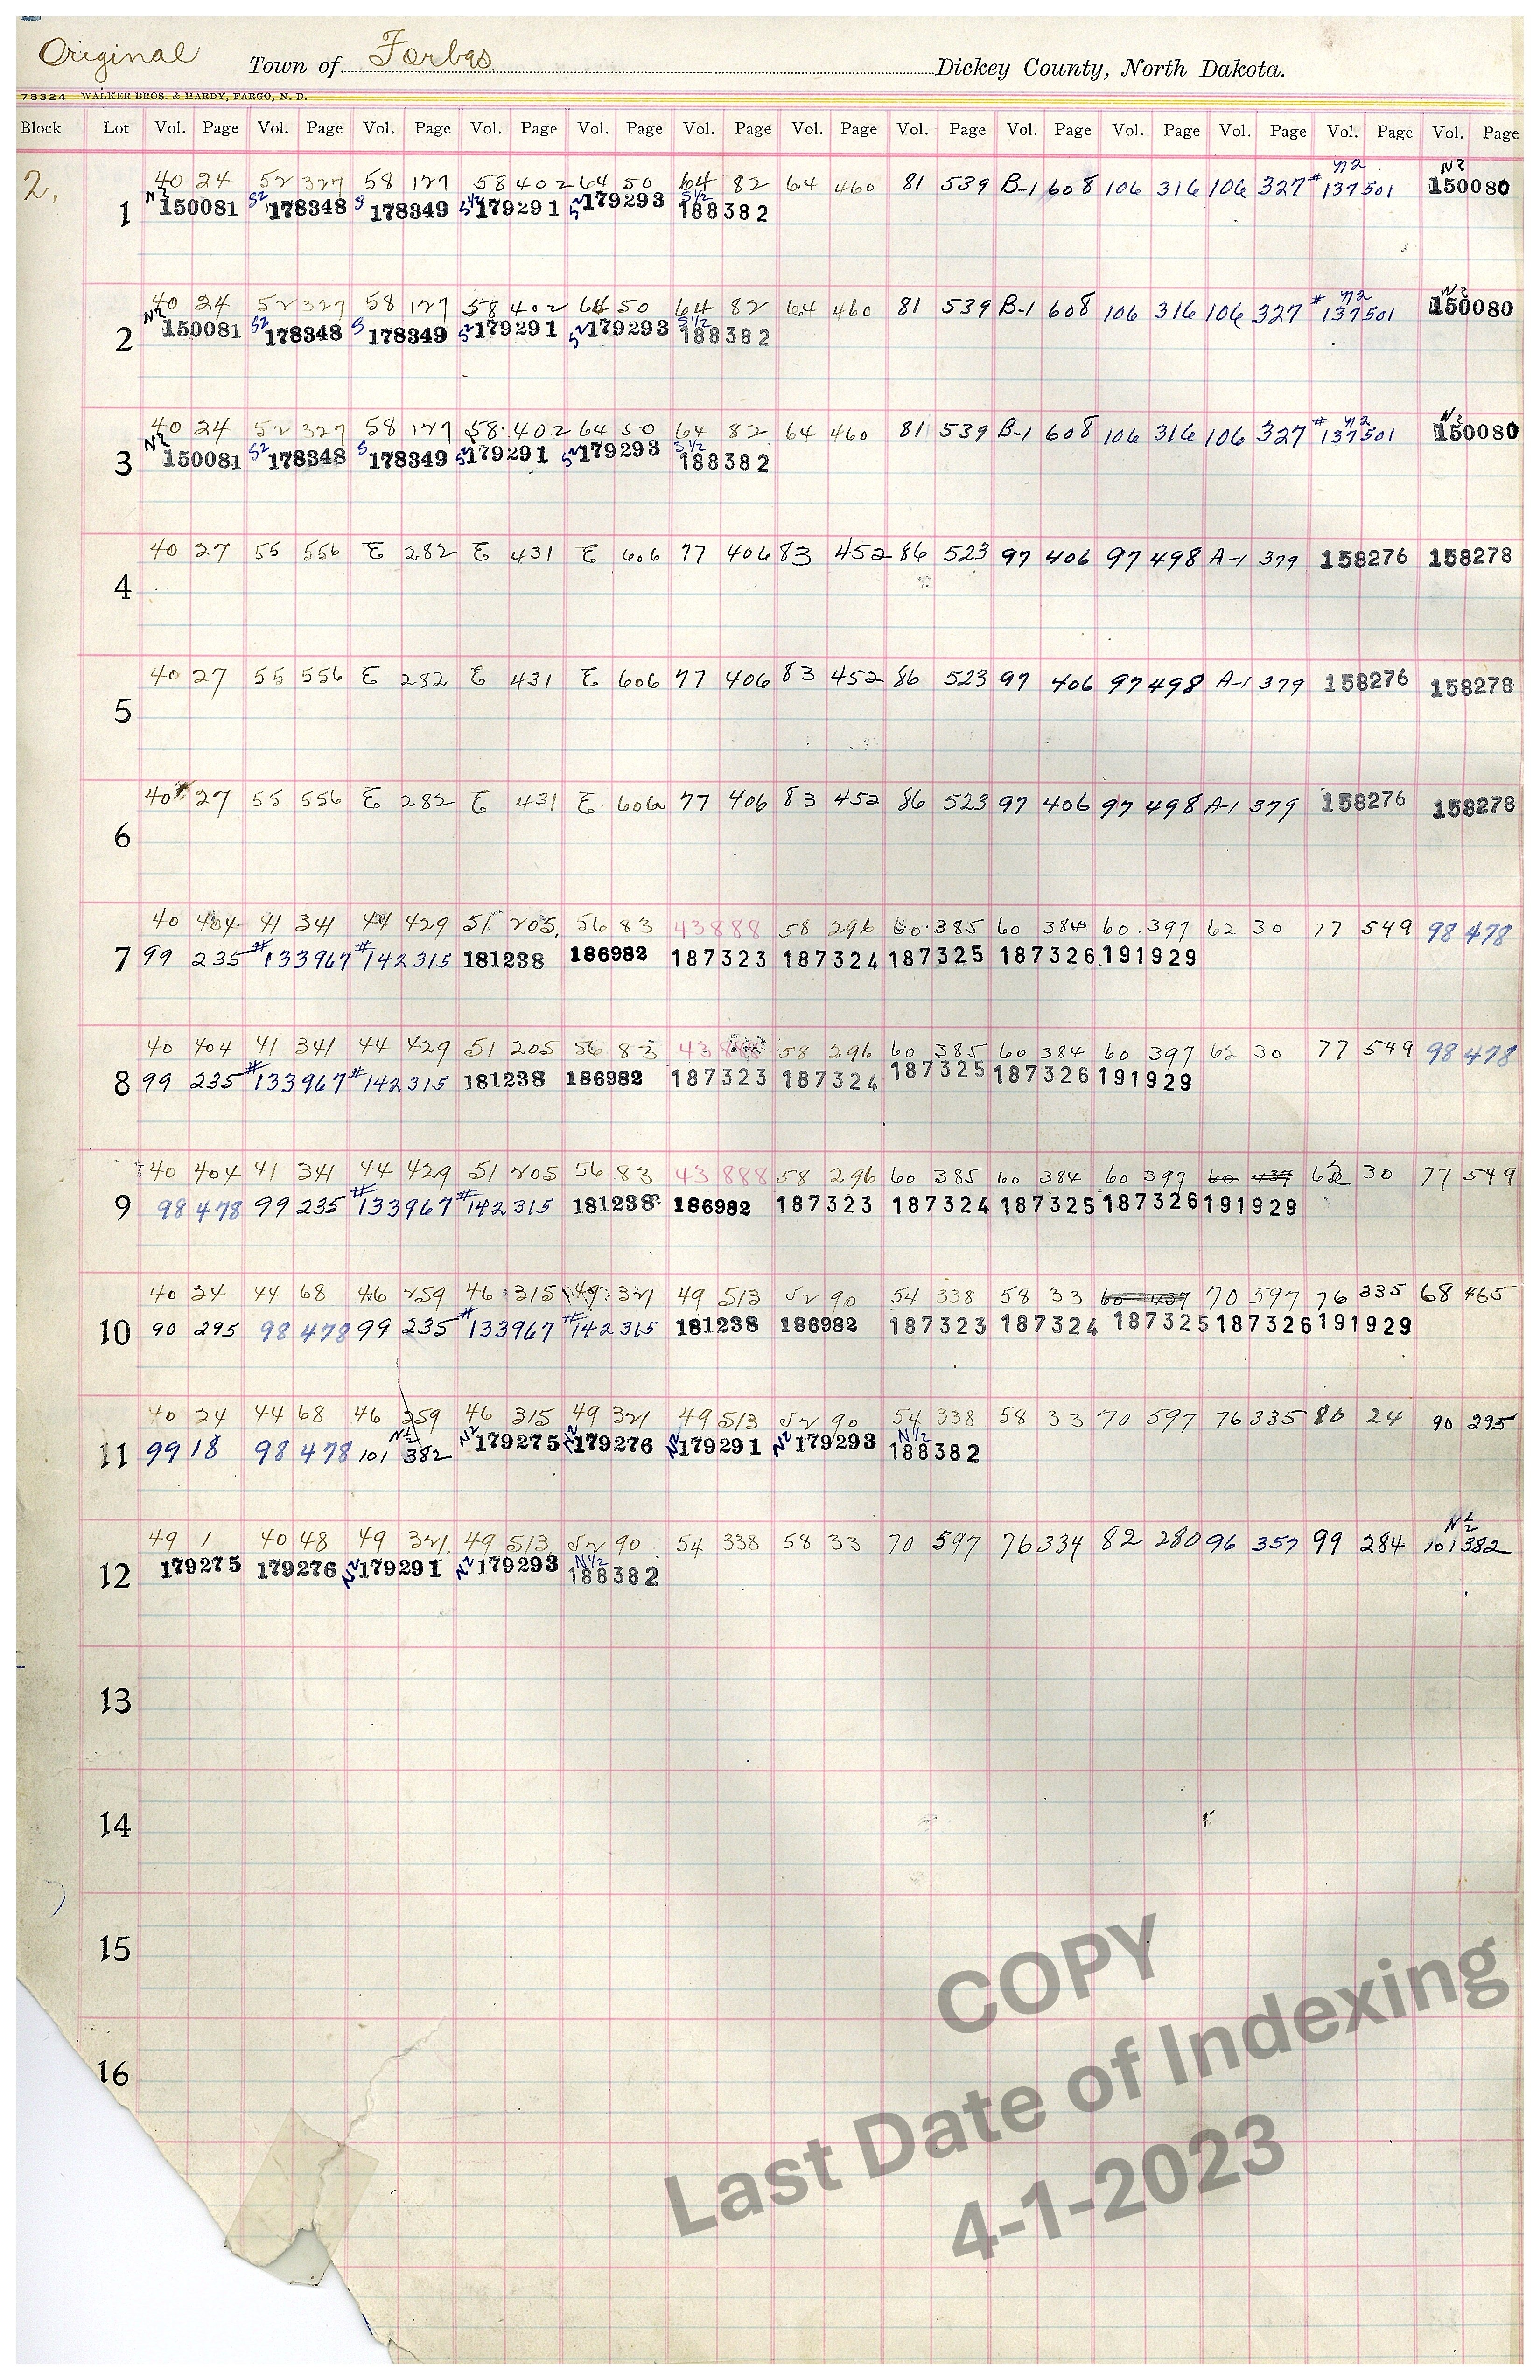 Original Town of Forbes Dickey County, North Dakota.
78324 WALKER BROS. & HARDY, FARGO, N. D.
Block Lot Vol. Page Vol. Page Vol. Page Vol. Page Vol. Page Vol. Page Vol. Page Vol. Page Vol. Page Vol. Page Vol. Page Vol. Page Vol. Page
N2 N2
2. 40 24 52 327 58 127 58 402 64 50 64 82 64 460 81 539 B-1 608 106 316 106 327 #137501 150080
1 N2 150081 S2 178348 S 178349 S1/2 179291 S2 179293 S1/2 188382
N2 N2
40 24 52 327 58 127 58 402 64 50 64 82 64 460 81 539 B-1 608 106 316 106 327 #137501 150080
2 N2 150081 S2 178348 S 178349 S2 179291 S2 179293 S1/2 188382
N2 N2
40 24 52 327 58 127 58 402 64 50 64 82 64 460 81 539 B-1 608 106 316 106 327 #137501 150080
3 N2 150081 S2 178348 S 178349 S2 179291 S2 179293 S1/2 188382
40 27 55 556 E 282 E 431 E 606 77 406 83 452 86 523 97 406 97 498 A-1 379 158276 158278
4
40 27 55 556 E 282 E 431 E 606 77 406 83 452 86 523 97 406 97 498 A-1 379 158276 158278
5
40 27 55 556 E 282 E 431 E 606 77 406 83 452 86 523 97 406 97 498 A-1 379 158276 158278
6
40 404 41 341 44 429 51 205 56 83 43888 58 296 60 385 60 384 60 397 62 30 77 549 98 478
7 99 235 #133967 #142315 181238 186982 187323 187324 187325 187326 191929
40 404 41 341 44 429 51 205 56 83 43888 58 296 60 385 60 384 60 397 62 30 77 549 98 478
8 99 235 #133967 #142315 181238 186982 187323 187324 187325 187326 191929
40 404 41 341 44 429 51 205 56 83 43888 58 296 60 385 60 384 60 397 60 437 62 30 77 549
9 98 478 99 235 #133967 #142315 181238 186982 187323 187324 187325 187326 191929
40 24 44 68 46 259 46 315 49 321 49 513 52 90 54 338 58 33 60 437 70 597 76 335 68 465
10 90 295 98 478 99 235 #133967 #142315 181238 186982 187323 187324 187325 187326 191929
40 24 44 68 46 259 46 315 49 321 49 513 52 90 54 338 58 33 70 597 76 335 80 24 90 295
11 99 18 98 478 101 N1/2 382 N2 179275 N2 179276 N2 179291 N2 179293 N1/2 188382
N1/2
49 1 40 48 49 321 49 513 52 90 54 338 58 33 70 597 76 334 82 280 96 357 99 284 101 382
12 179275 179276 N2 179291 N2 179293 N1/2 188382
13
14
15
16
COPY
Last Date of Indexing
4-1-2023